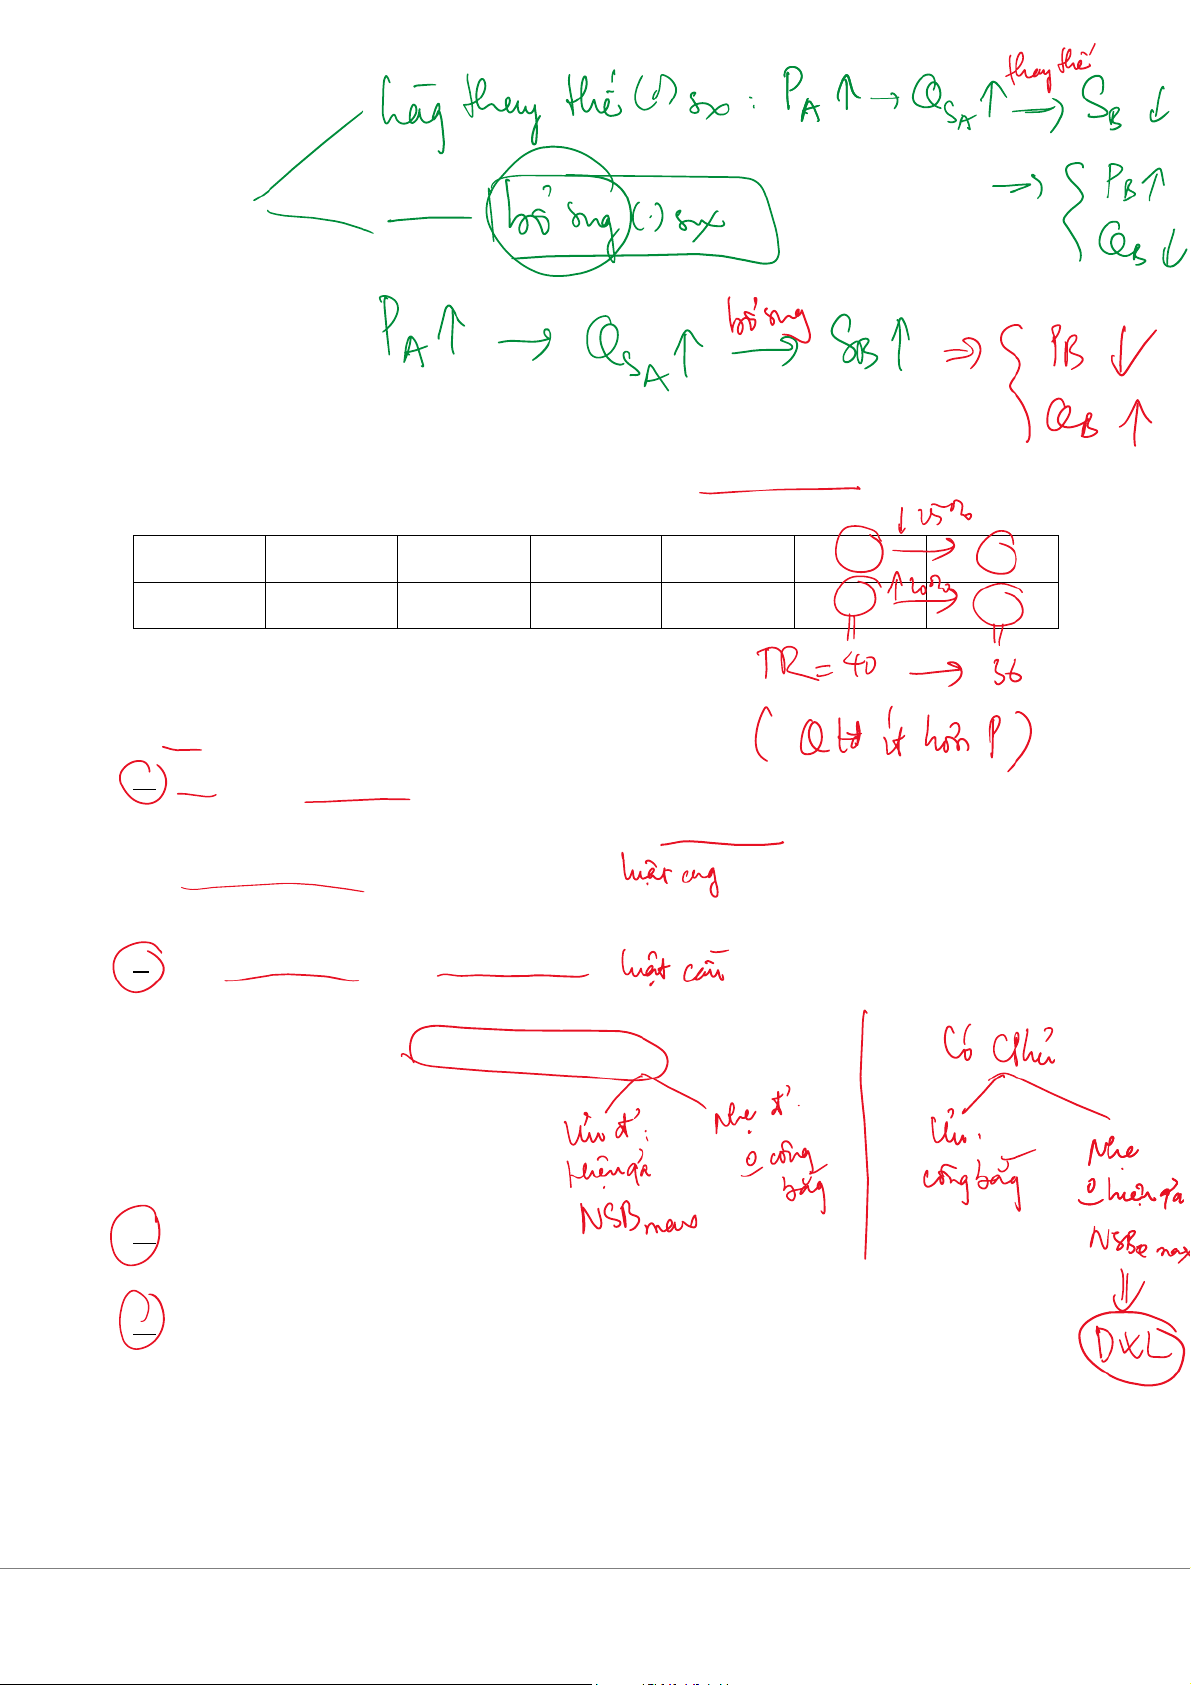 hàg thay thế (.) sx : P_A ↑ → Q_SA ↑ thay thế → S_B ↓
⇒ { P_B ↑
Q_B ↓
bổ sug (.) sx
P_A ↑ → Q_SA ↑ bổ sug → S_B ↑ ⇒ { P_B ↓
Q_B ↑
↓ 25%
↑ 20%
TR = 40 → 36
( Q tđ ít hơn P )
luật cug
luật cầu
Có CPhủ
Ưu đ' :
hiệu qả
NSB max
Nhẹ đ' .
o công
bằg
Ưu :
công bằg
Nhẹ
o hiệu qả
NSB max
⇓
DWL